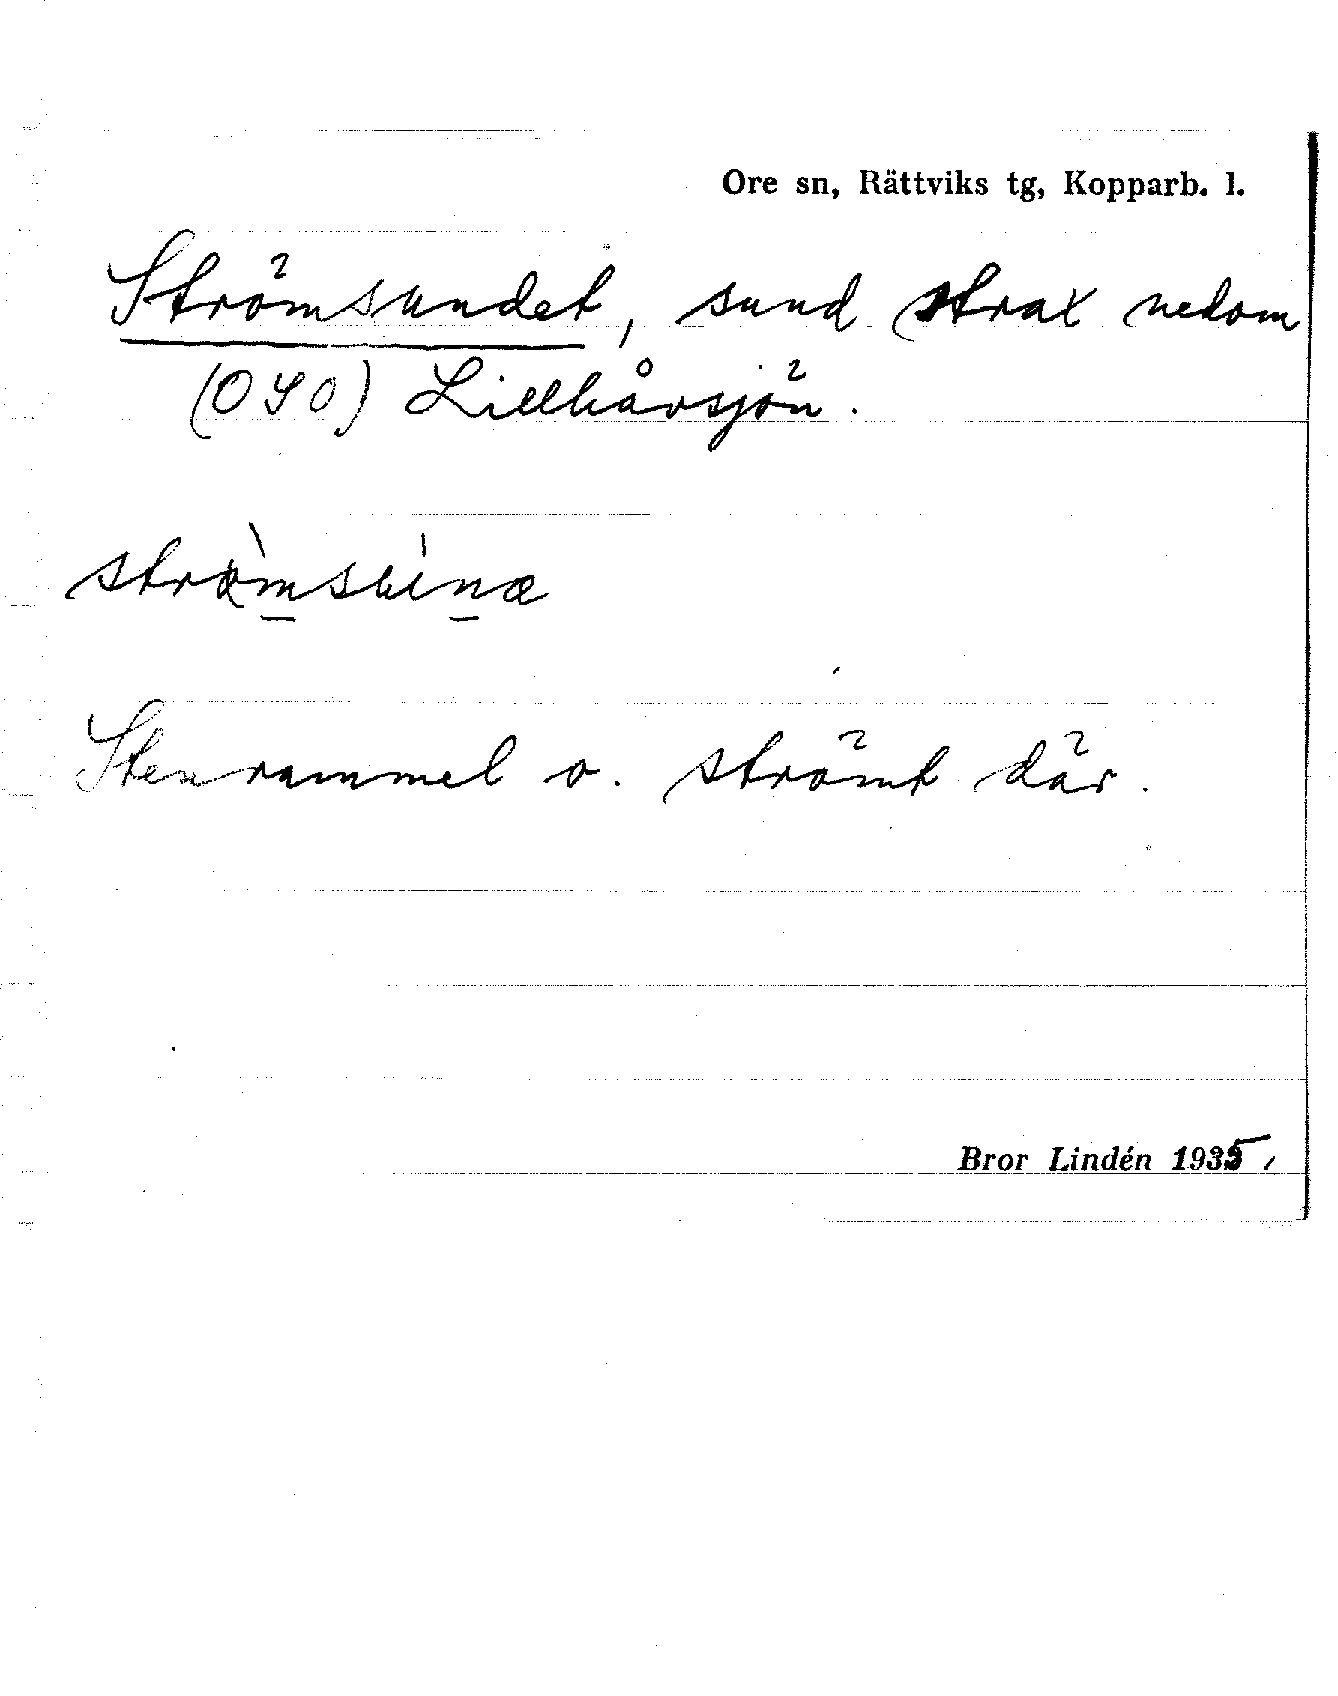 Ore sn, Rättviks tg, Kopparb. l.
Strömsundet, sund strax nedom
(OSO) Lillhårsjön.
Stenrammel o. strömt där.
Bror Lindén 1935